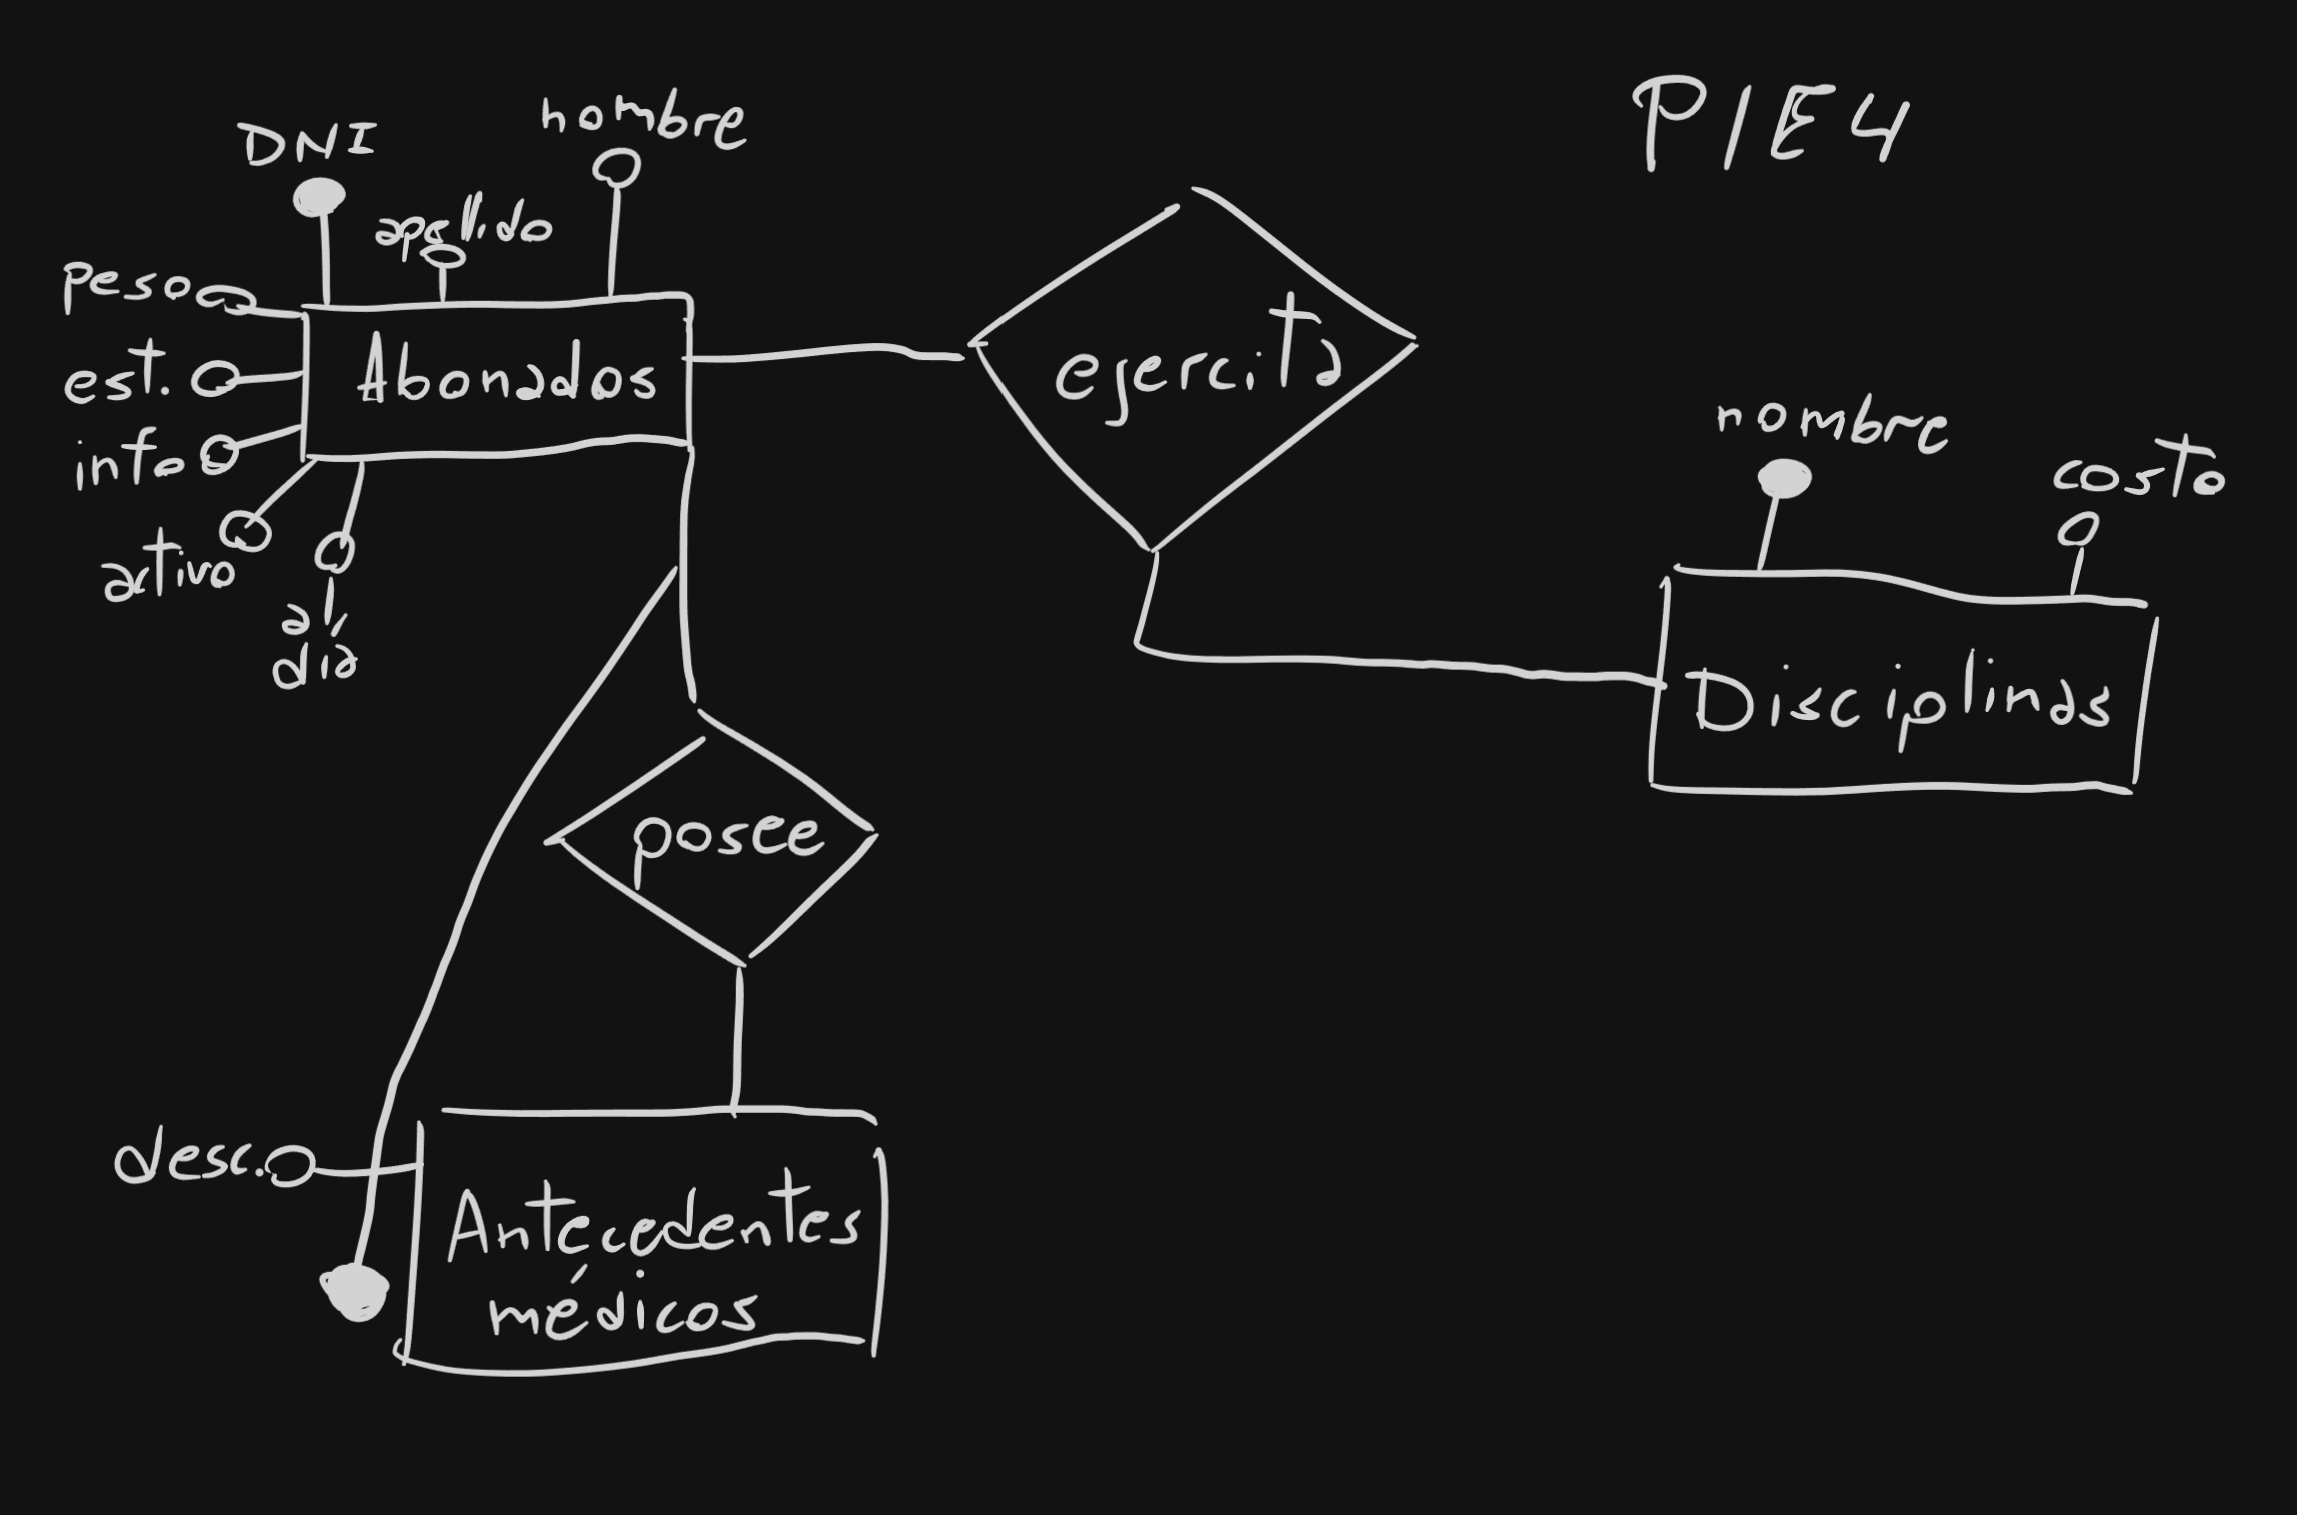 P1E4
DNI
nombre
apellido
peso
est.
info
activo
al
día
Abonados
ejercita
nombre
costo
Disciplinas
posee
desc.
Antecedentes
médicos